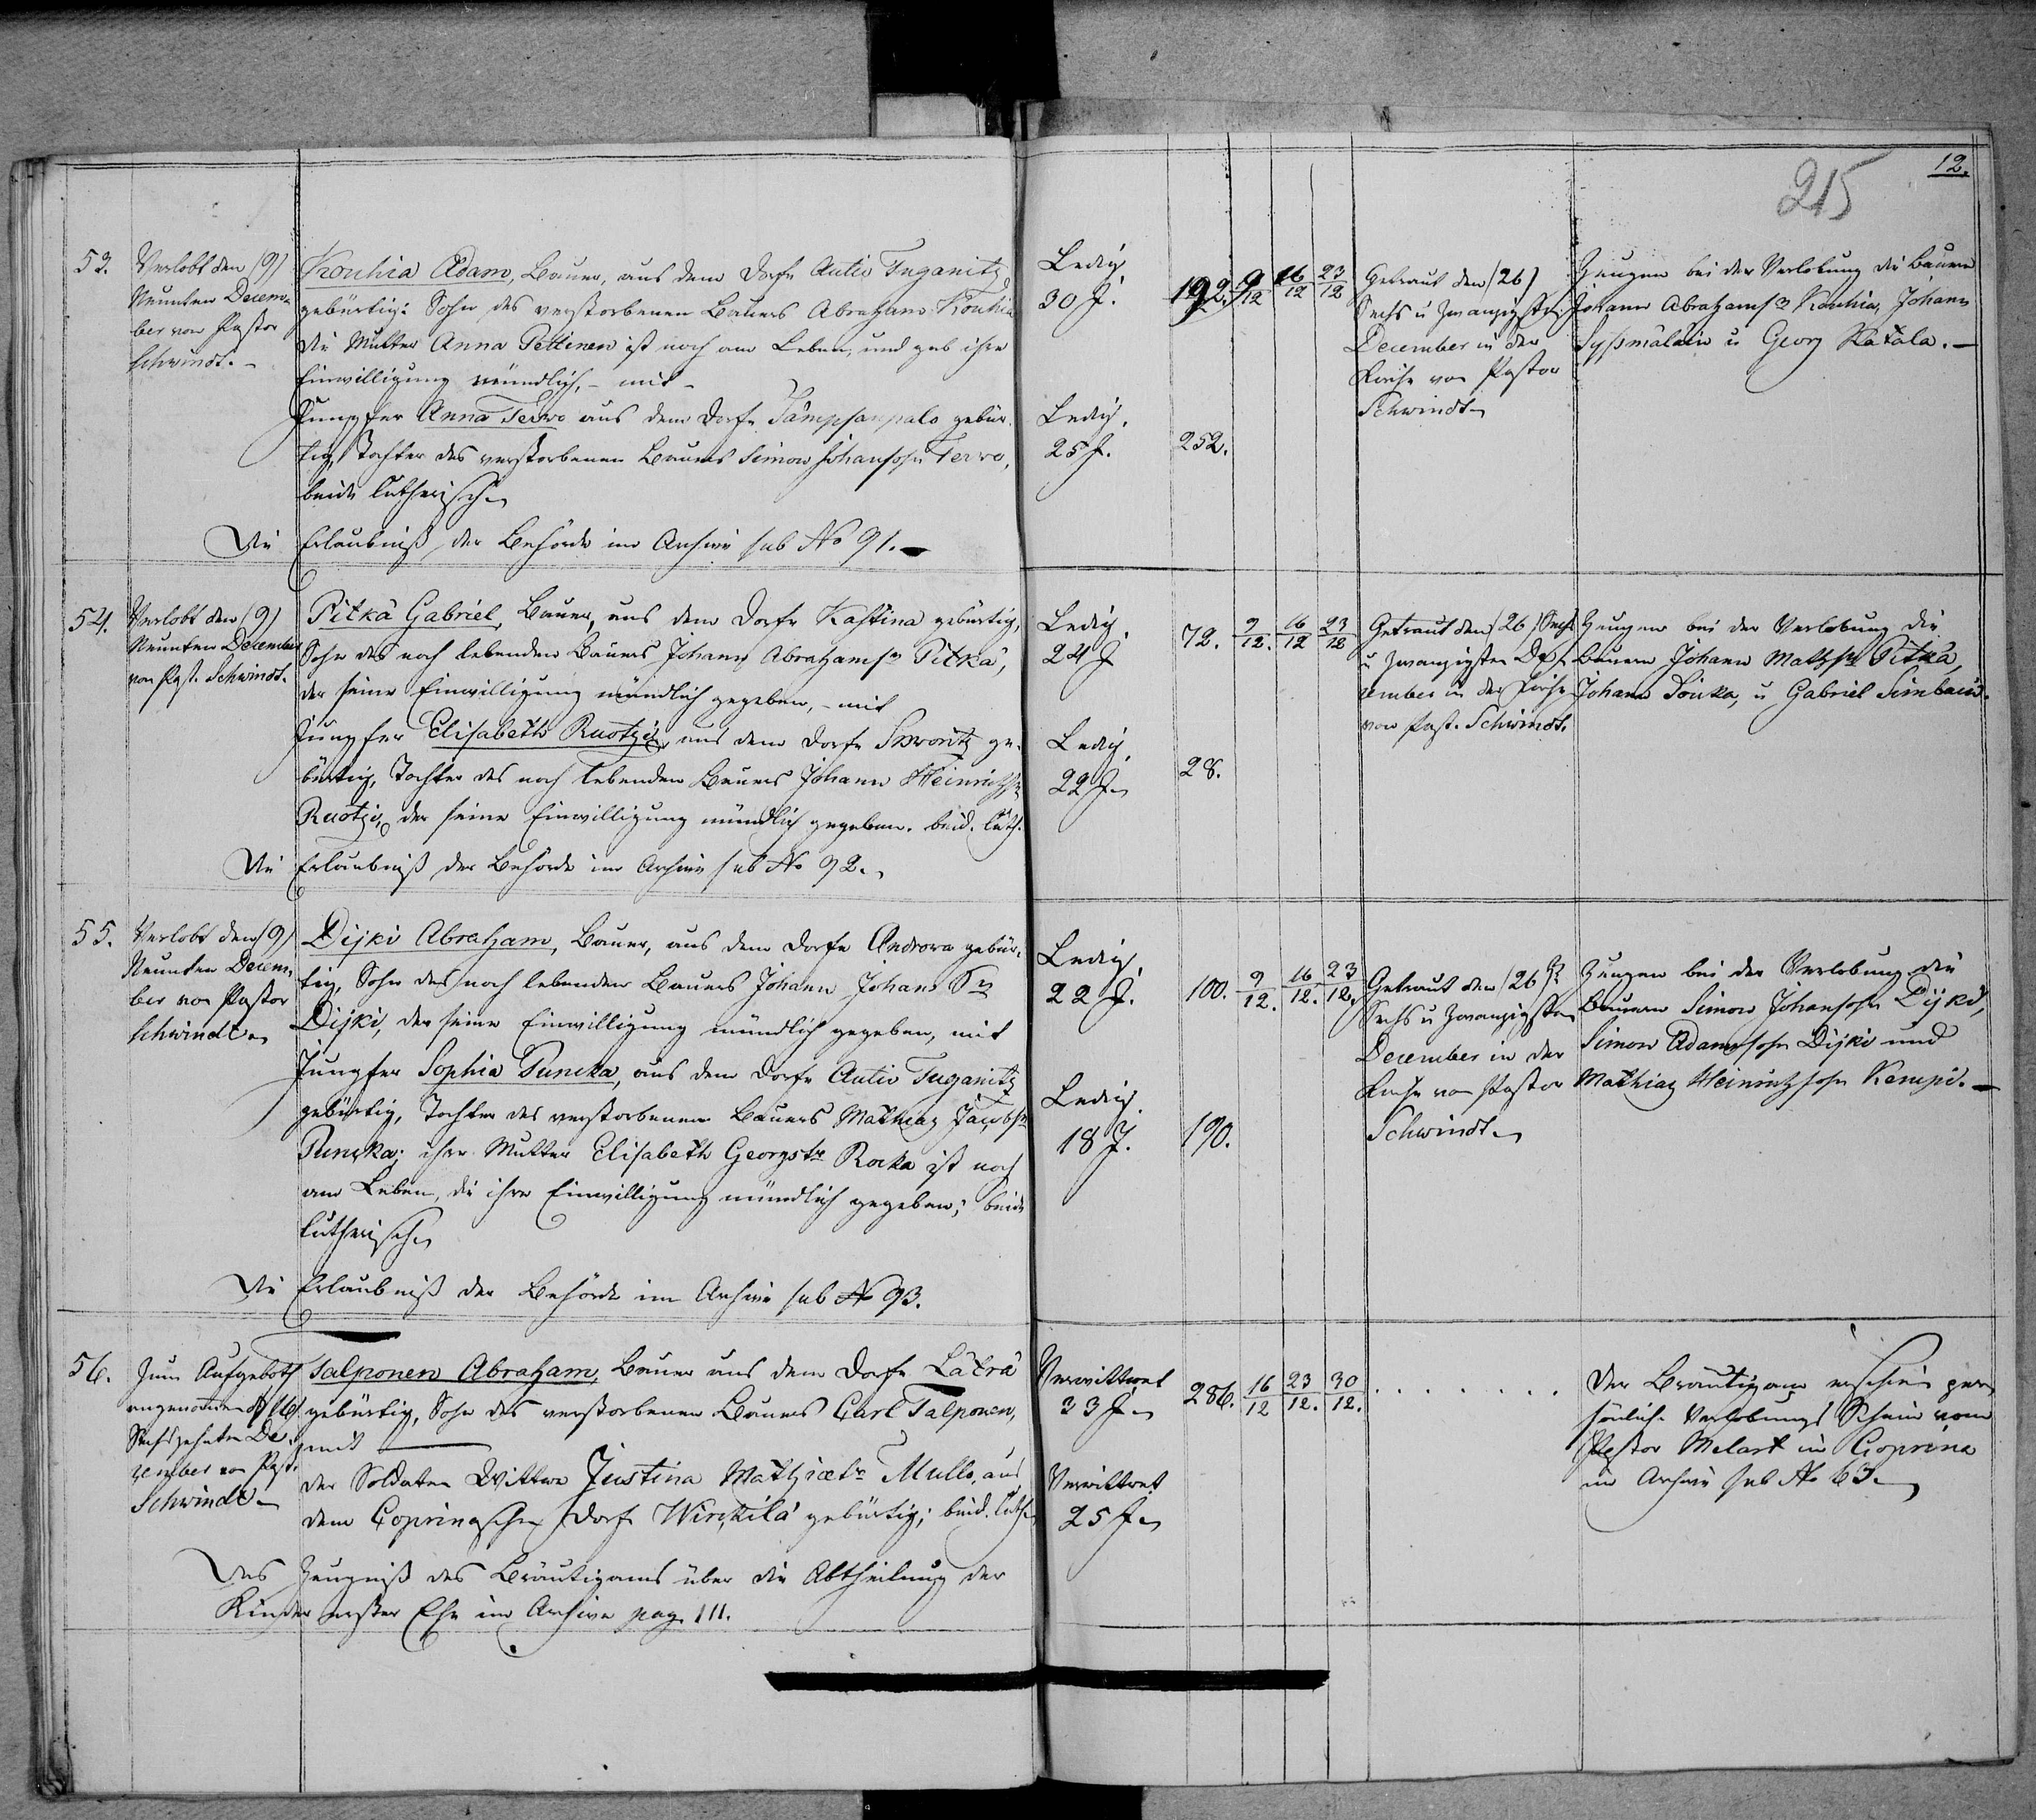 12.
215
53.
Verlobt den (9)
Neunten Decem-
ber von Pastor
Schwindt. –
Kouhia Adam, Bauer, aus dem Dorfe Autio Tuganitz
gebürtig: Sohn des verstorbenen Bauers Abraham Kouhia
die Mutter Anna Pettinen ist noch am Leben, und gab ihre
Einwilligung mündlich, – mit –
Jungfer Anna Terwo aus dem Dorfe Tämpsänpalo gebür-
tig, Tochter des verstorbenen Bauers Simon Johansohn Terwo,
beide lutherisch
Die Erlaubniß der Behörde im Archive sub No 91. –
Ledig
30 J.
Ledig.
25 J.
192.
252.
9/12
16/12
23/12
Getraut den (26)
Sechs u Zwanzigsten
December in der
Kirche von Pastor
Schwindt
Zeugen bei der Verlobung die Bauern
Johann Abrahamsn Kouhia, Johann
Syssmäläin u Georg Katala. –
54.
Verlobt den (9)
Neunten December
von Past. Schwindt.
Pitkä Gabriel, Bauer, aus dem Dorfe Kastina gebürtig,
Sohn des noch lebenden Bauers Johann Abrahamsn Pitkä,
der seine Einwilligung mündlich gegeben, – mit
Jungfer Elisabeth Ruotzi, aus dem Dorfe Skworitz ge-
bürtig, Tochter des noch lebenden Bauers Johann Heinrichsn
Ruotzi, der seine Einwilligung mündlich gegeben. beid. luth.
Die Erlaubniß der Behörde im Archive sub No 92.
Ledig
24 J
Ledig
22 J
72.
28.
9/12.
16/12
23/12
Getraut den (26) Sechs
u Zwanzigsten De-
cember in der Kirche
von Past. Schwindt.
Zeugen bei der Verlobung die
Bauern Johann Mathsn Pitkä,
Johann Souka, u Gabriel Simbain.
55.
Verlobt den (9)
Neunten Decem-
ber von Pastor
Schwindt
Dijki Abraham, Bauer, aus dem Dorfe Androwa gebür-
tig, Sohn des noch lebenden Bauers Johann Johans Sn
Dijki, der seine Einwilligung mündlich gegeben, mit
Jungfer Sophia Puncka, aus dem Dorfe Autio Tuganitz
gebürtig, Tochter des verstorbenen Bauers Mathias Jacobsn
Puncka; ihre Mutter Elisabeth Georgstr Rocka ist noch
am Leben, die ihre Einwilligung mündlich gegeben; beide
lutherisch
Die Erlaubniß der Behörde im Archive sub No 93.
Ledig.
22 J.
Ledig.
18 J.
100.
190.
9/12.
16/12.
23/12.
Getraut den (26)
Sechs u Zwanzigsten
December in der
Kirche von Pastor
Schwindt
Zeugen bei der Verlobung die
Bauern Simon Johansohn Dijki,
Simon Adamsohn Dijki und
Mathias Heinrichsohn Kempi. –
56.
Zum Aufgeboth
angenommen d (16)
Sechszehnten De-
cember von Past.
Schwindt
Talponen Abraham, Bauer aus dem Dorfe Läträ
gebürtig, Sohn des verstorbenen Bauers Carl Talponen,
mit
der Soldaten Wittwe Justina Mathiaetr Mullo, aus
dem Coprinaschen Dorfe Wirckilä gebürtig; beid. luth.
Das Zeugniß des Bräutigams über die Abtheilung der
Kinder erster Ehe im Archive pag. 111.
Verwittwet
33 J
Verwittwet
25 J
286.
16/12
23/12.
30/12.
. . . . . . . .
Der Bräutigam erschien per-
sönlich. Verlobungs Schein vom
Pastor Melart in Coprina
im Archive sub No 63.